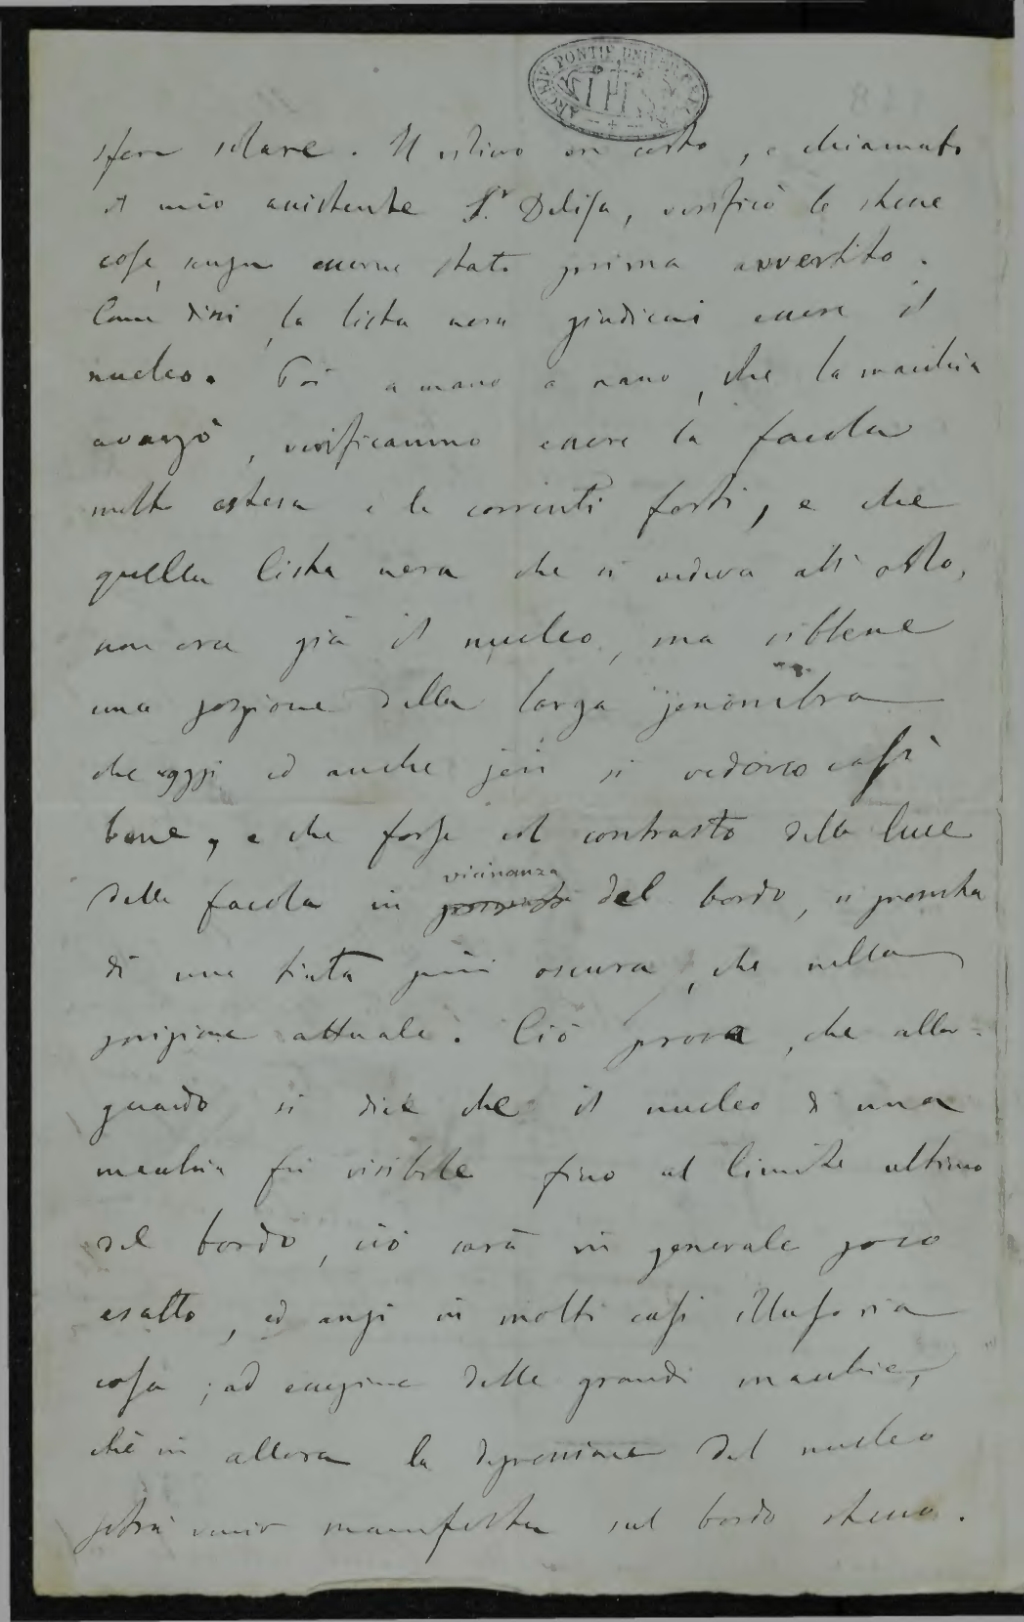 ARCHIV. PONTIF. UNIV. GREG.
IHS
sfera solare. Il
, e chiamato
il mio assistente S.r Delisa, verificò le stesse
cose, senza esserne stato prima avvertito.
Come dissi, la lista nera giudicai essere il
nucleo. Poi a mano a mano, che la macchia
avanzò, verificammo essere la facola
molto estesa e le correnti forti, e che
quella lista nera che si vedeva all'orlo,
non era già il nucleo, ma sibbene
una porzione della larga penombra
che oggi ed anche jeri si vedono così
bene, e che forse col contrasto della luce
vicinanza
della facola in del bordo, si presenta
di una tinta più oscura, che nella
posizione attuale. Ciò prova, che allor-
quando si dice che il nucleo di una
macchia fu visibile fino al limite ultimo
del bordo, ciò sarà in generale poco
esatto, ed anzi in molti casi illusoria
cosa; ad eccezione delle grandi macchie,
chè in allora la depressione del nucleo
potrà venir manifesta sul bordo stesso.